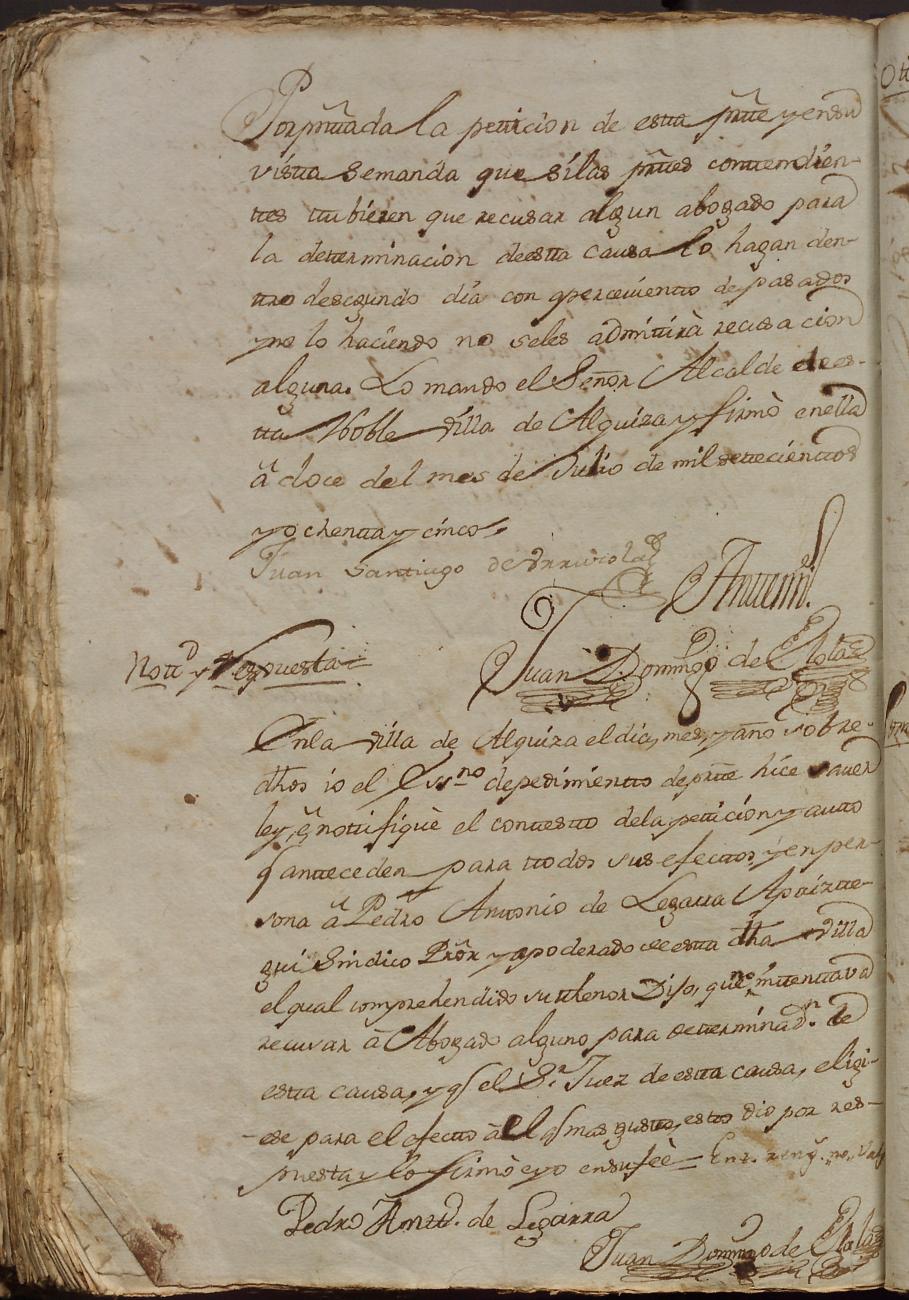 Por pres̃tada la peticion de esta prẽ y en su
vista se manda que si las prẽs contendien-
tes tubieren que recusar algun abogado para
la determinacion de esta causa lo hagan den-
tro de segundo dia con apercevimiento de pasados
y no lo haciendo no seles admitirà recusacion
alguna. Lo mando el Señor Alcalde de es-
ta Noble villa de Alquiza y firmò en ella
à doce del mes de Julio de mil setecientos
y ochenta y cinco
Juan Santiago de Yrruiola
Ante mi
Juan Domingo de Elola
Nott.ⁿ y Respuesta
En la villa de Alquiza el dia, mes, y año sobre-
dhos io el Essⁿᵒ de pedimiento de prẽ hice saver
ley, è notifiquè el contesto dela peticion y auto
q̃ anteceden para todos sus efectos, y en per-
sona à Pedro Antonio de Legarra Apaizte-
gui Sindico Prõr y apoderado de esta dha villa
el qual comprehendido su thenor Dijo, que no intentava
recusar à Abogado alguno para determinaⁿ. de
esta causa, y q̃ el S.ʳ Juez de esta causa, eligi-
ese para el efecto àel q̃ mas guste, esto dio por res-
puesta y lo firmò e yo en su feè = Enz. reng. no, valg
Pedro Antt.º de Legarra
Juan Domingo de Elola